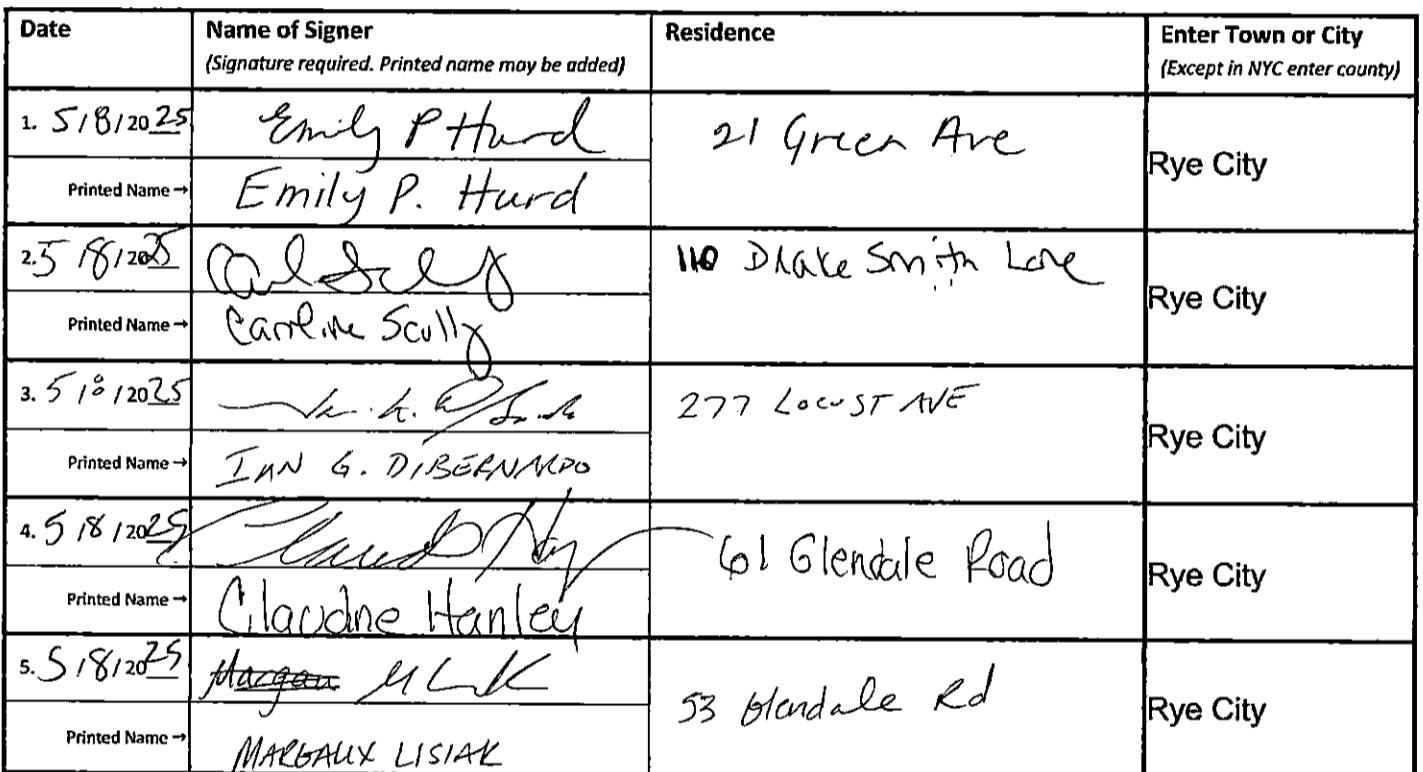 Date Name of Signer Residence Enter Town or City
(Signature required. Printed name may be added) (Except in NYC enter county)
1. 5/8/2025 Emily P Hurd 21 Green Ave Rye City
Printed Name → Emily P. Hurd
2. 5/8/2025 110 Drake Smith Lane Rye City
Printed Name → Caroline Scully
3. 5/8/2025 277 LOCUST AVE Rye City
Printed Name → IAN G. DIBERNARDO
4. 5/8/2025 61 Glendale Road Rye City
Printed Name → Claudine Hanley
5. 5/8/2025 53 Glendale Rd Rye City
Printed Name → MARGAUX LISIAK